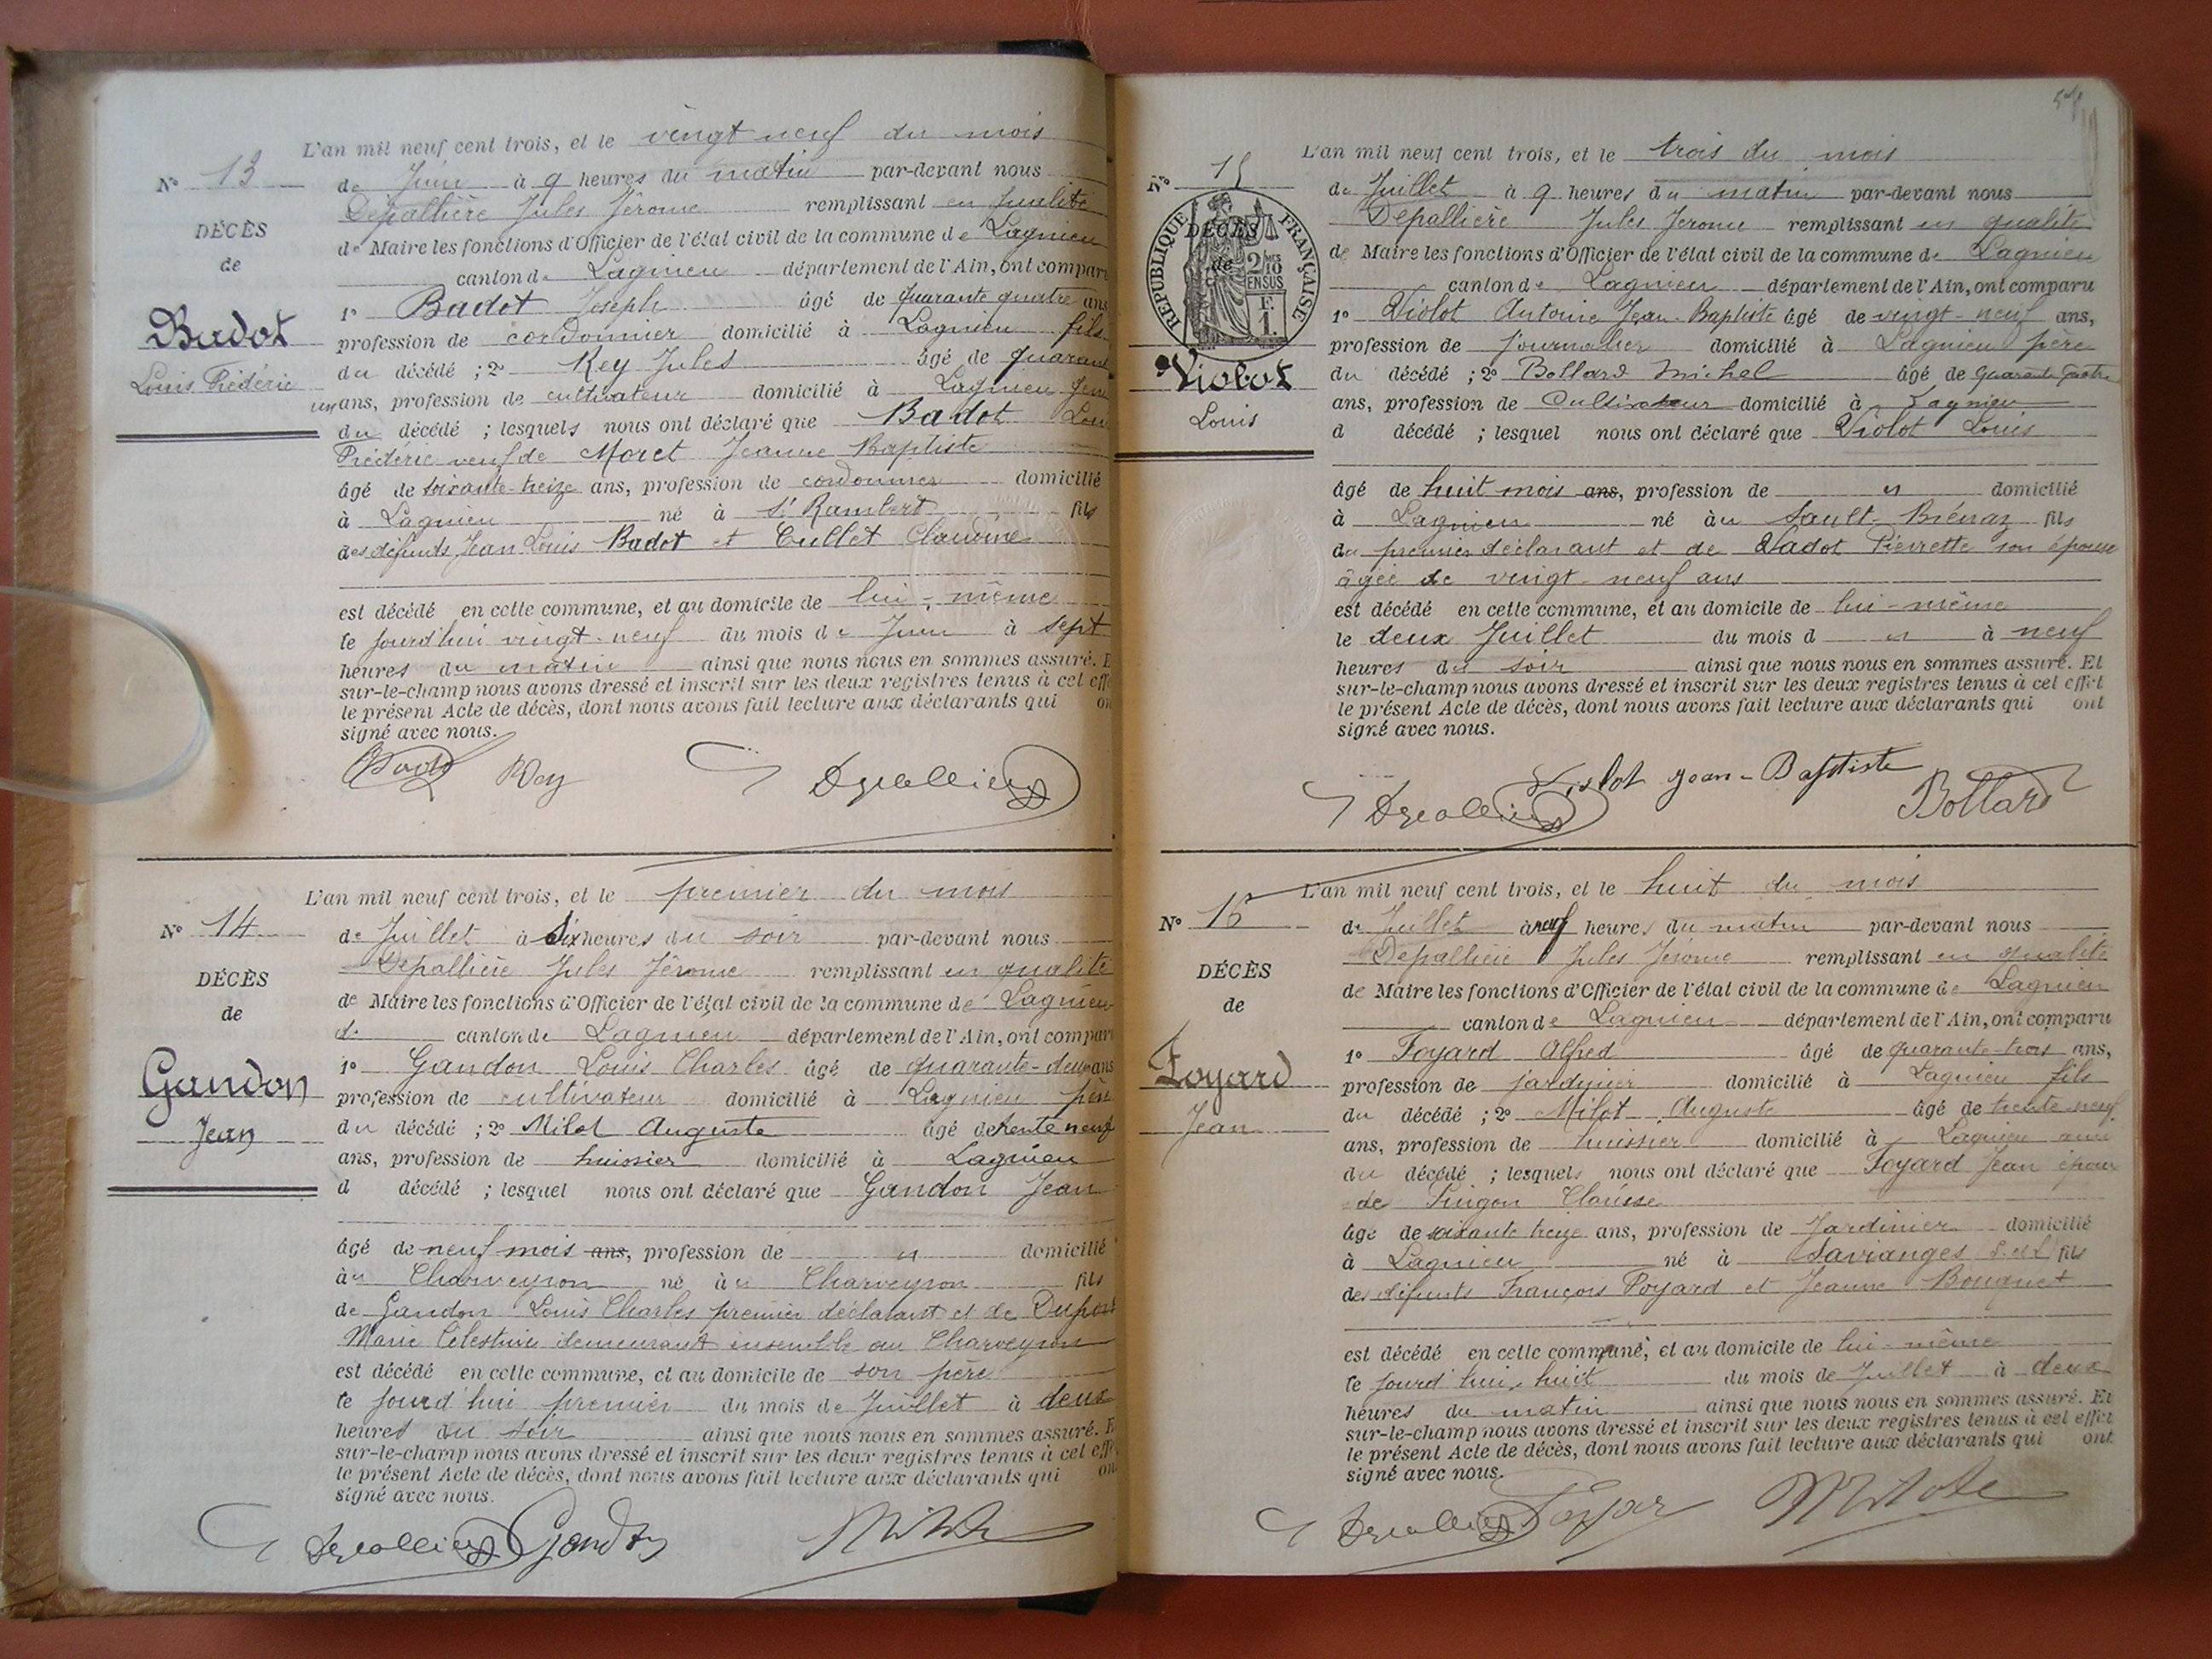 L'an mil neuf cent trois, et le vingt neuf du mois
N° 13
de Juin à 9 heures du matin par-devant nous
Depallière Jules Jérome remplissant en qualité
DÉCÈS
de Maire les fonctions d'Officier de l'état civil de la commune de Lagnieu
de
canton de Lagnieu département de l'Ain, ont compar
1° Badot Joseph âgé de quarante quatre ans
Badot
profession de cordonnier domicilié à Lagnieu fils
Louis Frédéric
du décédé ; 2° Rey Jules âgé de quarant
un ans, profession de cultivateur domicilié à Lagnieu
du décédé ; lesquels nous ont déclaré que Badot Lou
Frédéric veuf de Moret Jeanne Baptiste
âgé de soixante-treize ans, profession de cordonnier domicilié
à Lagnieu né à St Rambert fils
des défunts Jean Louis Badot et Cullet Claudine
est décédé en cette commune, et au domicile de lui-même
le jourd'hui vingt-neuf du mois de Juin à sept
heures du matin ainsi que nous nous en sommes assuré. E
sur-le-champ nous avons dressé et inscrit sur les deux registres tenus à cet effe
le présent Acte de décès, dont nous avons fait lecture aux déclarants qui on
signé avec nous.
Badot Rey Depallière
L'an mil neuf cent trois, et le premier du mois
N° 14
de Juillet à Six heures du soir par-devant nous
Depallière Jules Jérome remplissant en qualité
DÉCÈS
de Maire les fonctions d'Officier de l'état civil de la commune de Lagnieu
de
d. canton de Lagnieu département de l'Ain, ont compar
1° Gandon Louis Charles âgé de quarante-deux ans
Gandon
profession de cultivateur domicilié à Lagnieu père
Jean
du décédé ; 2° Milot Auguste âgé de trente neuf
ans, profession de huissier domicilié à Lagnieu
d décédé ; lesquel nous ont déclaré que Gandon Jean
âgé de neuf mois ans, profession de " domicilié
au Charveyron né au Charveyron fils
de Gandon Louis Charles premier déclarant et de Dupont
Marie Célestine demeurant ensemble au Charveyron
est décédé en cette commune, et au domicile de son père
le jourd'hui premier du mois de Juillet à deux
heures du soir ainsi que nous nous en sommes assuré. E
sur-le-champ nous avons dressé et inscrit sur les deux registres tenus à cet effe
le présent Acte de décès, dont nous avons fait lecture aux déclarants qui on
signé avec nous.
Depallière Gandon Milot
L'an mil neuf cent trois, et le trois du mois
N° 15
de Juillet à 9 heures du matin par-devant nous
Depallière Jules Jerome remplissant en qualité
RÉPUBLIQUE FRANÇAISE
DÉCÈS
de
2/10 EN SUS
F. 1.
de Maire les fonctions d'Officier de l'état civil de la commune de Lagnieu
canton de Lagnieu département de l'Ain, ont comparu
1° Violot Antoine Jean-Baptiste âgé de vingt-neuf ans,
profession de journalier domicilié à Lagnieu père
Violot
du décédé ; 2° Bollard Michel âgé de quarante quatre
ans, profession de Cultivateur domicilié à Lagnieu
Louis
d décédé ; lesquel nous ont déclaré que Violot Louis
âgé de huit mois ans, profession de " domicilié
à Lagnieu né au Sault-Brénaz fils
du premier déclarant et de Vadot Pierrette son épouse
âgée de vingt-neuf ans
est décédé en cette commune, et au domicile de lui-même
le deux Juillet du mois d " à neuf
heures du soir ainsi que nous nous en sommes assuré. Et
sur-le-champ nous avons dressé et inscrit sur les deux registres tenus à cet effet
le présent Acte de décès, dont nous avons fait lecture aux déclarants qui ont
signé avec nous.
Violot Jean-Baptiste
Depallière Bollard
L'an mil neuf cent trois, et le huit du mois
N° 16
de Juillet à neuf heures du matin par-devant nous
Depallière Jules Jérome remplissant en qualité
DÉCÈS
de Maire les fonctions d'Officier de l'état civil de la commune de Lagnieu
de
canton de Lagnieu département de l'Ain, ont comparu
1° Foyard Alfred âgé de quarante trois ans,
Foyard
profession de jardinier domicilié à Lagnieu fils
Jean
du décédé ; 2° Milot Auguste âgé de trente neuf
ans, profession de huissier domicilié à Lagnieu ami
du décédé ; lesquels nous ont déclaré que Foyard Jean époux
de Clarisse
âgé de soixante treize ans, profession de Jardinier domicilié
à Lagnieu né à Savianges S. et L. fils
des défunts François Foyard et Jeanne Bouquet
est décédé en cette commune, et au domicile de lui-même
le jourd'hui huit du mois de Juillet à deux
heures du matin ainsi que nous nous en sommes assuré. Et
sur-le-champ nous avons dressé et inscrit sur les deux registres tenus à cet effet
le présent Acte de décès, dont nous avons fait lecture aux déclarants qui ont
signé avec nous.
Depallière Foyard Milot